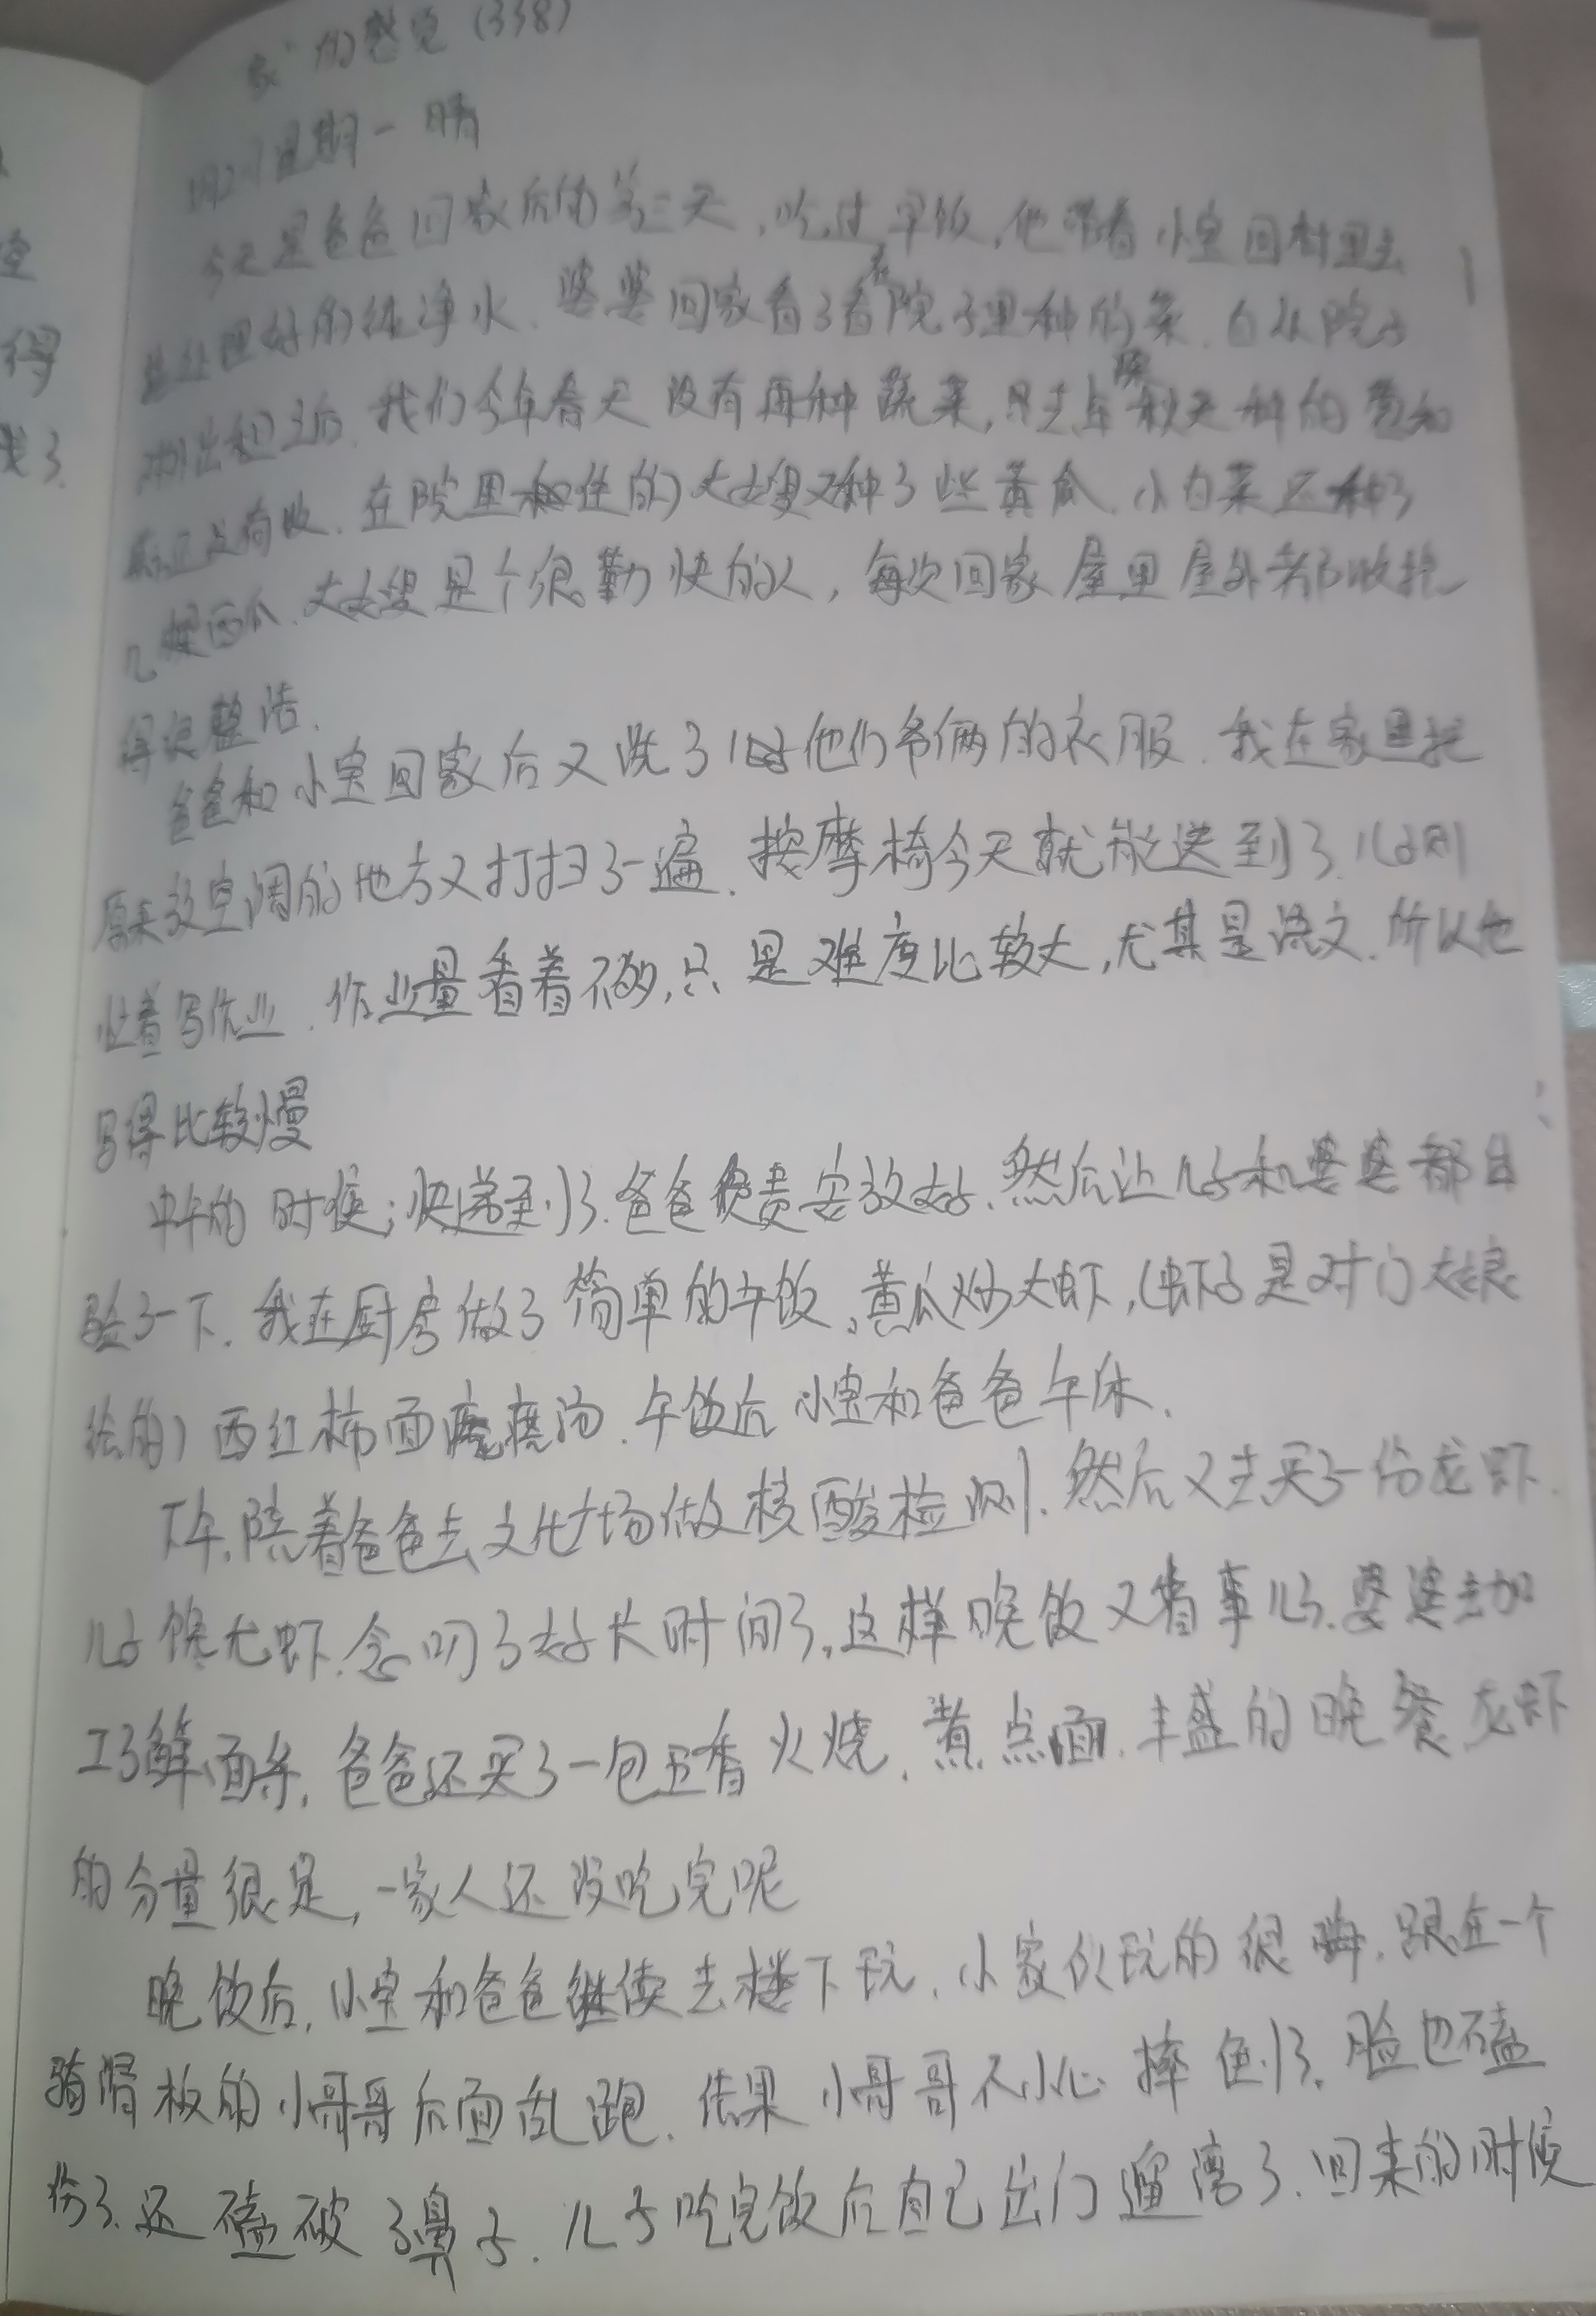 家的感觉(338)
星期一 晴
今天是爸爸回家后的第三天,吃过早饭,他带着小宝回村里去
处理好的纯净水.婆婆回家看了看院子里种的菜.自从院子
租出去后.我们今年春天没有再种蔬菜,只去年秋天种的葱和
还没有收.在院里租住的大嫂又种了些黄瓜.小白菜还种了
几棵西瓜.大嫂是个很勤快的人,每次回家屋里屋外都收拾
得很整洁.
爸爸和小宝回家后又洗了他们爷俩的衣服.我在家里把
原来放空调的地方又打扫了一遍.按摩椅今天就能送到了.儿子则
忙着写作业.作业量看着不多,只是难度比较大,尤其是语文.所以他
写得比较慢
中午的时候;快递到了.爸爸负责安放好.然后让儿子和婆婆都体
验了一下.我在厨房做了简单的午饭,黄瓜炒大虾,(虾子是对门大娘
给的)西红柿面疙瘩汤.午饭后小宝和爸爸午休.
下午,陪着爸爸去文化广场做核酸检测.然后又去买了一份龙虾.
儿子馋龙虾.念叨了好长时间了,这样晚饭又省事儿了.婆婆去加
工了鲜面条,爸爸还买了一包五香火烧.煮点面.丰盛的晚餐,龙虾
的分量很足,一家人还没吃完呢
晚饭后,小宝和爸爸继续去楼下玩.小家伙玩的很嗨.跟在一个
骑滑板的小哥哥后面乱跑.结果小哥哥不小心摔倒了.脸也磕
伤了.还磕破了鼻子.儿子吃完饭后自己出门遛湾了.回来的时候